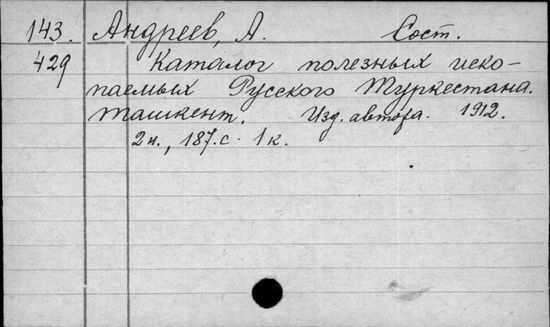 143. Андреев, А. Сост.
429 Каталог полезных иско-
паемых Русского Туркестана.
Ташкент. Изд. автора. 1912.
2н., 187.с. 1к.